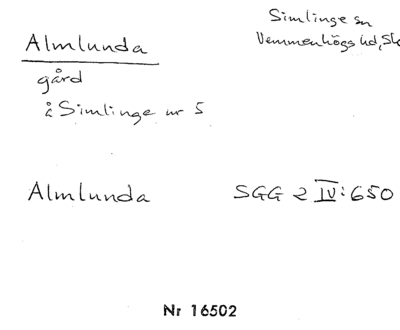 Almlunda
Simlinge sn
Vemmenhögs hd, Sk
gård
å Simlinge nr 5
Almlunda SGG 2 IV:650
Nr 16502